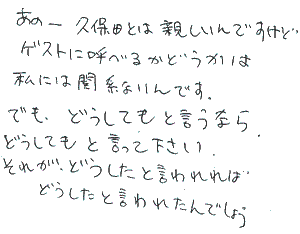 あのー久保田とは親しいんですけど
ゲストに呼べるかどうかは
私には関係ないんです。
でも、どうしてもと言うなら
どうしてもと言って下さい。
それが、どうしたと言われれば
どうしたと言われたんでしょう